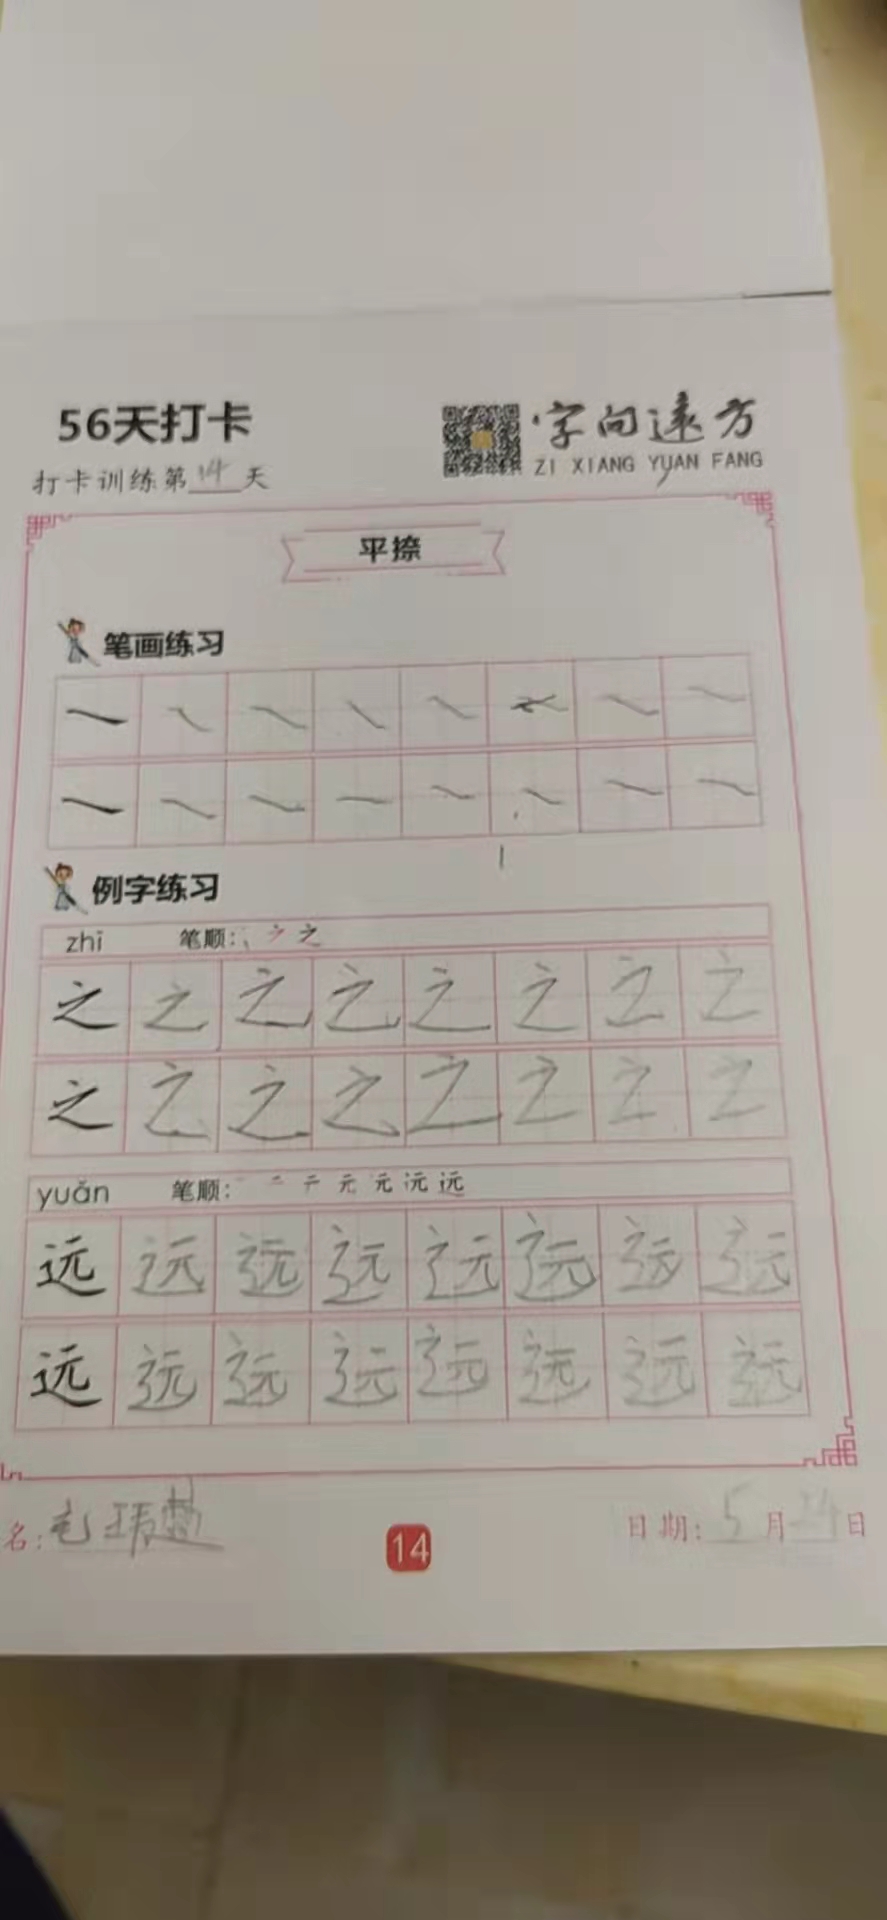 56天打卡
字向远方
ZI XIANG YUAN FANG
打卡训练第14天
平捺
笔画练习
例字练习
zhī 笔顺: 丶 ㇇ 之
之 之 之 之 之 之 之 之
之 之 之 之 之 之 之 之
yuǎn 笔顺: 一 二 テ 元 元 沅 远
远 远 远 远 远 远 远 远
远 远 远 远 远 远 远 远
名: 毛玮楚
14
日期: 5月24日